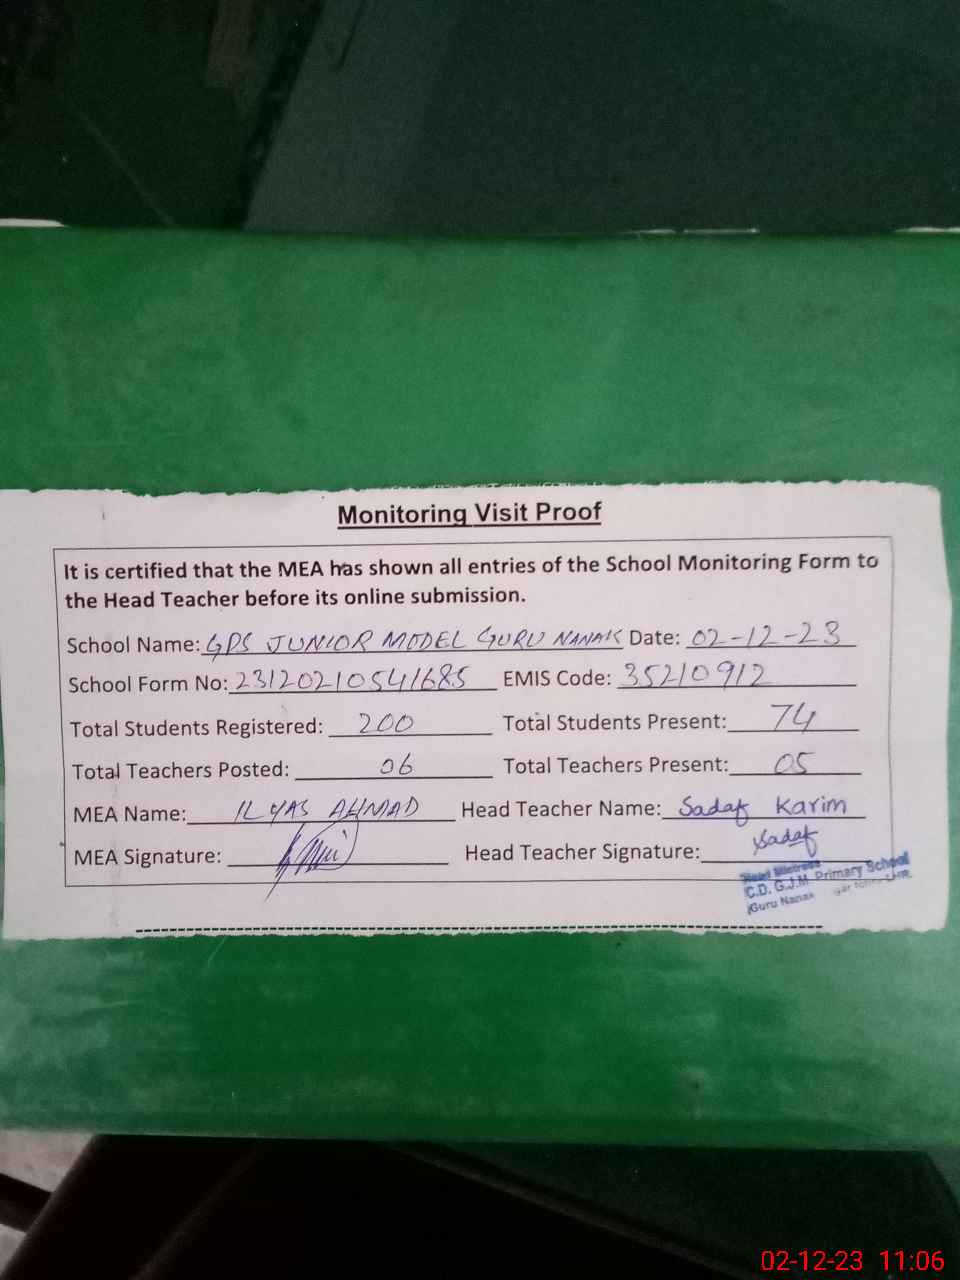 Monitoring Visit Proof
It is certified that the MEA has shown all entries of the School Monitoring Form to
the Head Teacher before its online submission.
School Name: GPS JUNIOR MODEL GURU NANAK Date: 02-12-23
School Form No: 23120210541685 EMIS Code: 35210912
Total Students Registered: 200 Total Students Present: 74
Total Teachers Posted: 06 Total Teachers Present: 05
MEA Name: ILYAS AHMAD Head Teacher Name: Sadaf Karim
MEA Signature: Head Teacher Signature: Sadaf
Head Mistress
C.D. G.J.M. Primary School
Guru Nanak
02-12-23 11:06